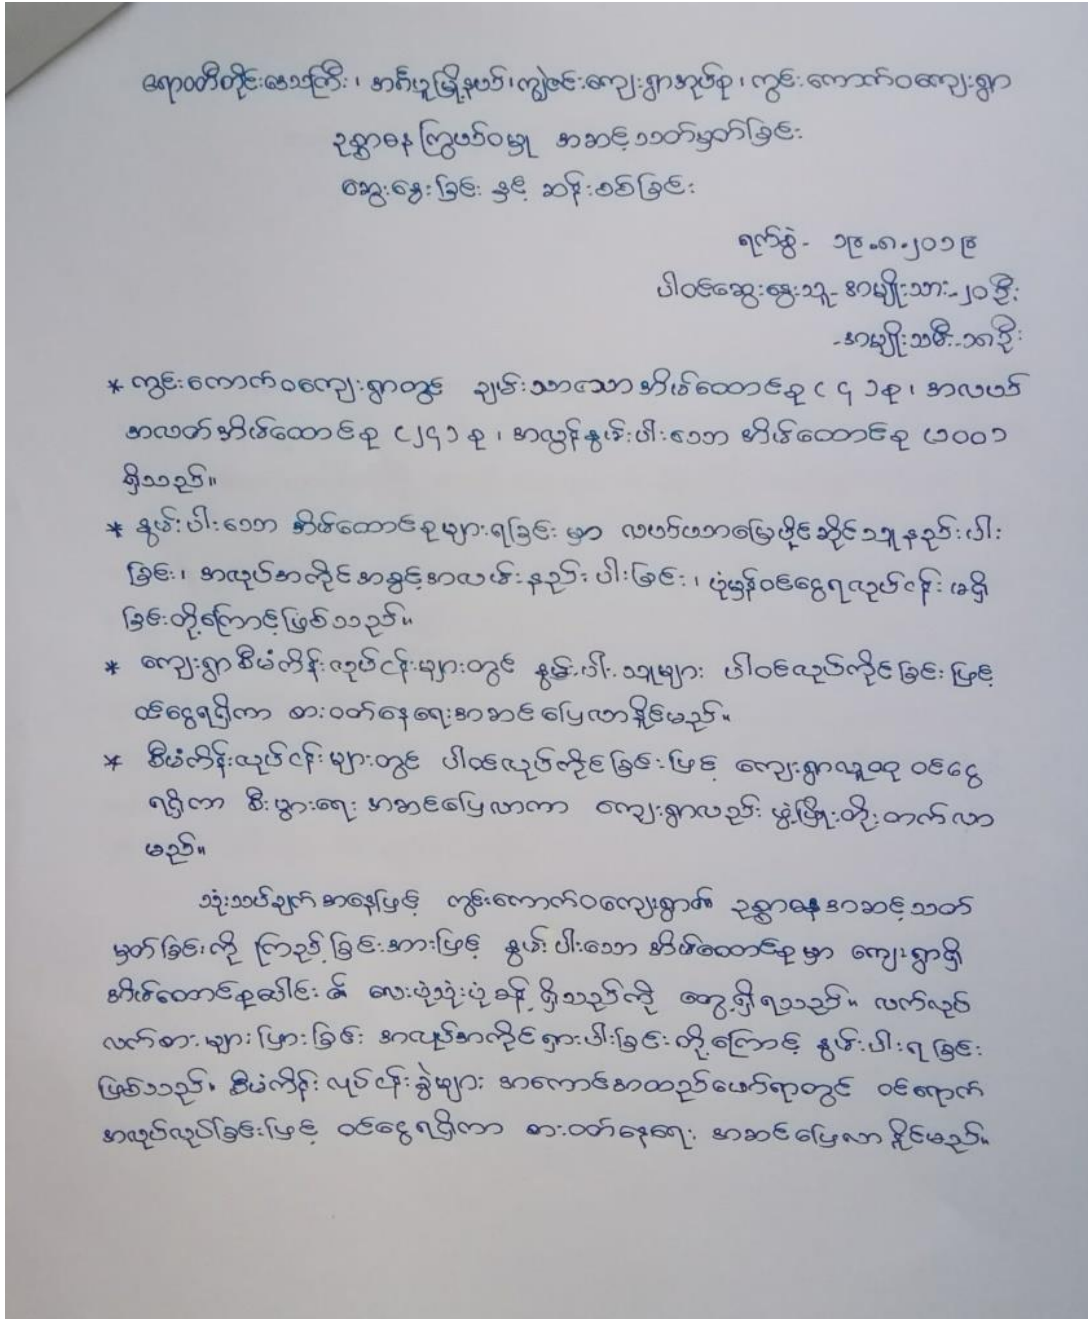 ဧရာဝတီတိုင်းဒေသကြီး၊ အင်္ဂပူမြို့နယ်၊ ကျွဲဇင်းကျေးရွာအုပ်စု၊ ကွင်းကောက်ဝကျေးရွာ
ဥစ္စာဓန ကြွယ်ဝမှု အဆင့်သတ်မှတ်ခြင်း
ဆွေးနွေးခြင်း နှင့် ဆန်းစစ်ခြင်း
ရက်စွဲ - ၁၉.၈.၂၀၁၉
ပါဝင်ဆွေးနွေးသူ - အမျိုးသား - ၂၀ ဦး
- အမျိုးသမီး - ဦး
* ကွင်းကောက်ဝကျေးရွာတွင် ချမ်းသာသော အိမ်ထောင်စု ( ၄ ) စု၊ အလယ်
အလတ်အိမ်ထောင်စု (၂၄) စု၊ အလွန်နွမ်းပါးသော အိမ်ထောင်စု
ရှိသည်။
* နွမ်းပါးသော အိမ်ထောင်စုများရခြင်း မှာ လယ်ယာမြေပိုင်ဆိုင်သူနည်းပါး
ခြင်း၊ အလုပ်အကိုင်အခွင့်အလမ်းနည်းပါးခြင်း၊ ပုံမှန်ဝင်ငွေရလုပ်ငန်း မရှိ
ခြင်းတို့ကြောင့်ဖြစ်သည်။
* ကျေးရွာစီမံကိန်းလုပ်ငန်းများတွင် နွမ်းပါးသူများ ပါဝင်လုပ်ကိုင်ခြင်းဖြင့်
ဝင်ငွေရရှိကာ စားဝတ်နေရေးအဆင်ပြေလာနိုင်မည်။
* စီမံကိန်းလုပ်ငန်းများတွင် ပါဝင်လုပ်ကိုင်ခြင်းဖြင့် ကျေးရွာလူထု ဝင်ငွေ
ရရှိကာ စီးပွားရေး အဆင်ပြေလာကာ ကျေးရွာလည်း ဖွံ့ဖြိုးတိုးတက်လာ
မည်။
သုံးသပ်ချက်အနေဖြင့် ကွင်းကောက်ဝကျေးရွာ၏ ဥစ္စာဓနအဆင့်သတ်
မှတ်ခြင်းကို ကြည့်ခြင်းအားဖြင့် နွမ်းပါးသော အိမ်ထောင်စုမှာ ကျေးရွာရှိ
အိမ်ထောင်စုပေါင်း၏ လေးပုံသုံးပုံခန့် ရှိသည်ကို တွေ့ရှိရသည်။ လက်လုပ်
လက်စားများပြားခြင်း အလုပ်အကိုင်ရှားပါးခြင်းတို့ကြောင့် နွမ်းပါးရခြင်း
ဖြစ်သည်။ စီမံကိန်းလုပ်ငန်းခွဲများ အကောင်အထည်ဖော်ရာတွင် ဝင်ရောက်
အလုပ်လုပ်ခြင်းဖြင့် ဝင်ငွေရရှိကာ စားဝတ်နေရေး အဆင်ပြေလာနိုင်မည်။